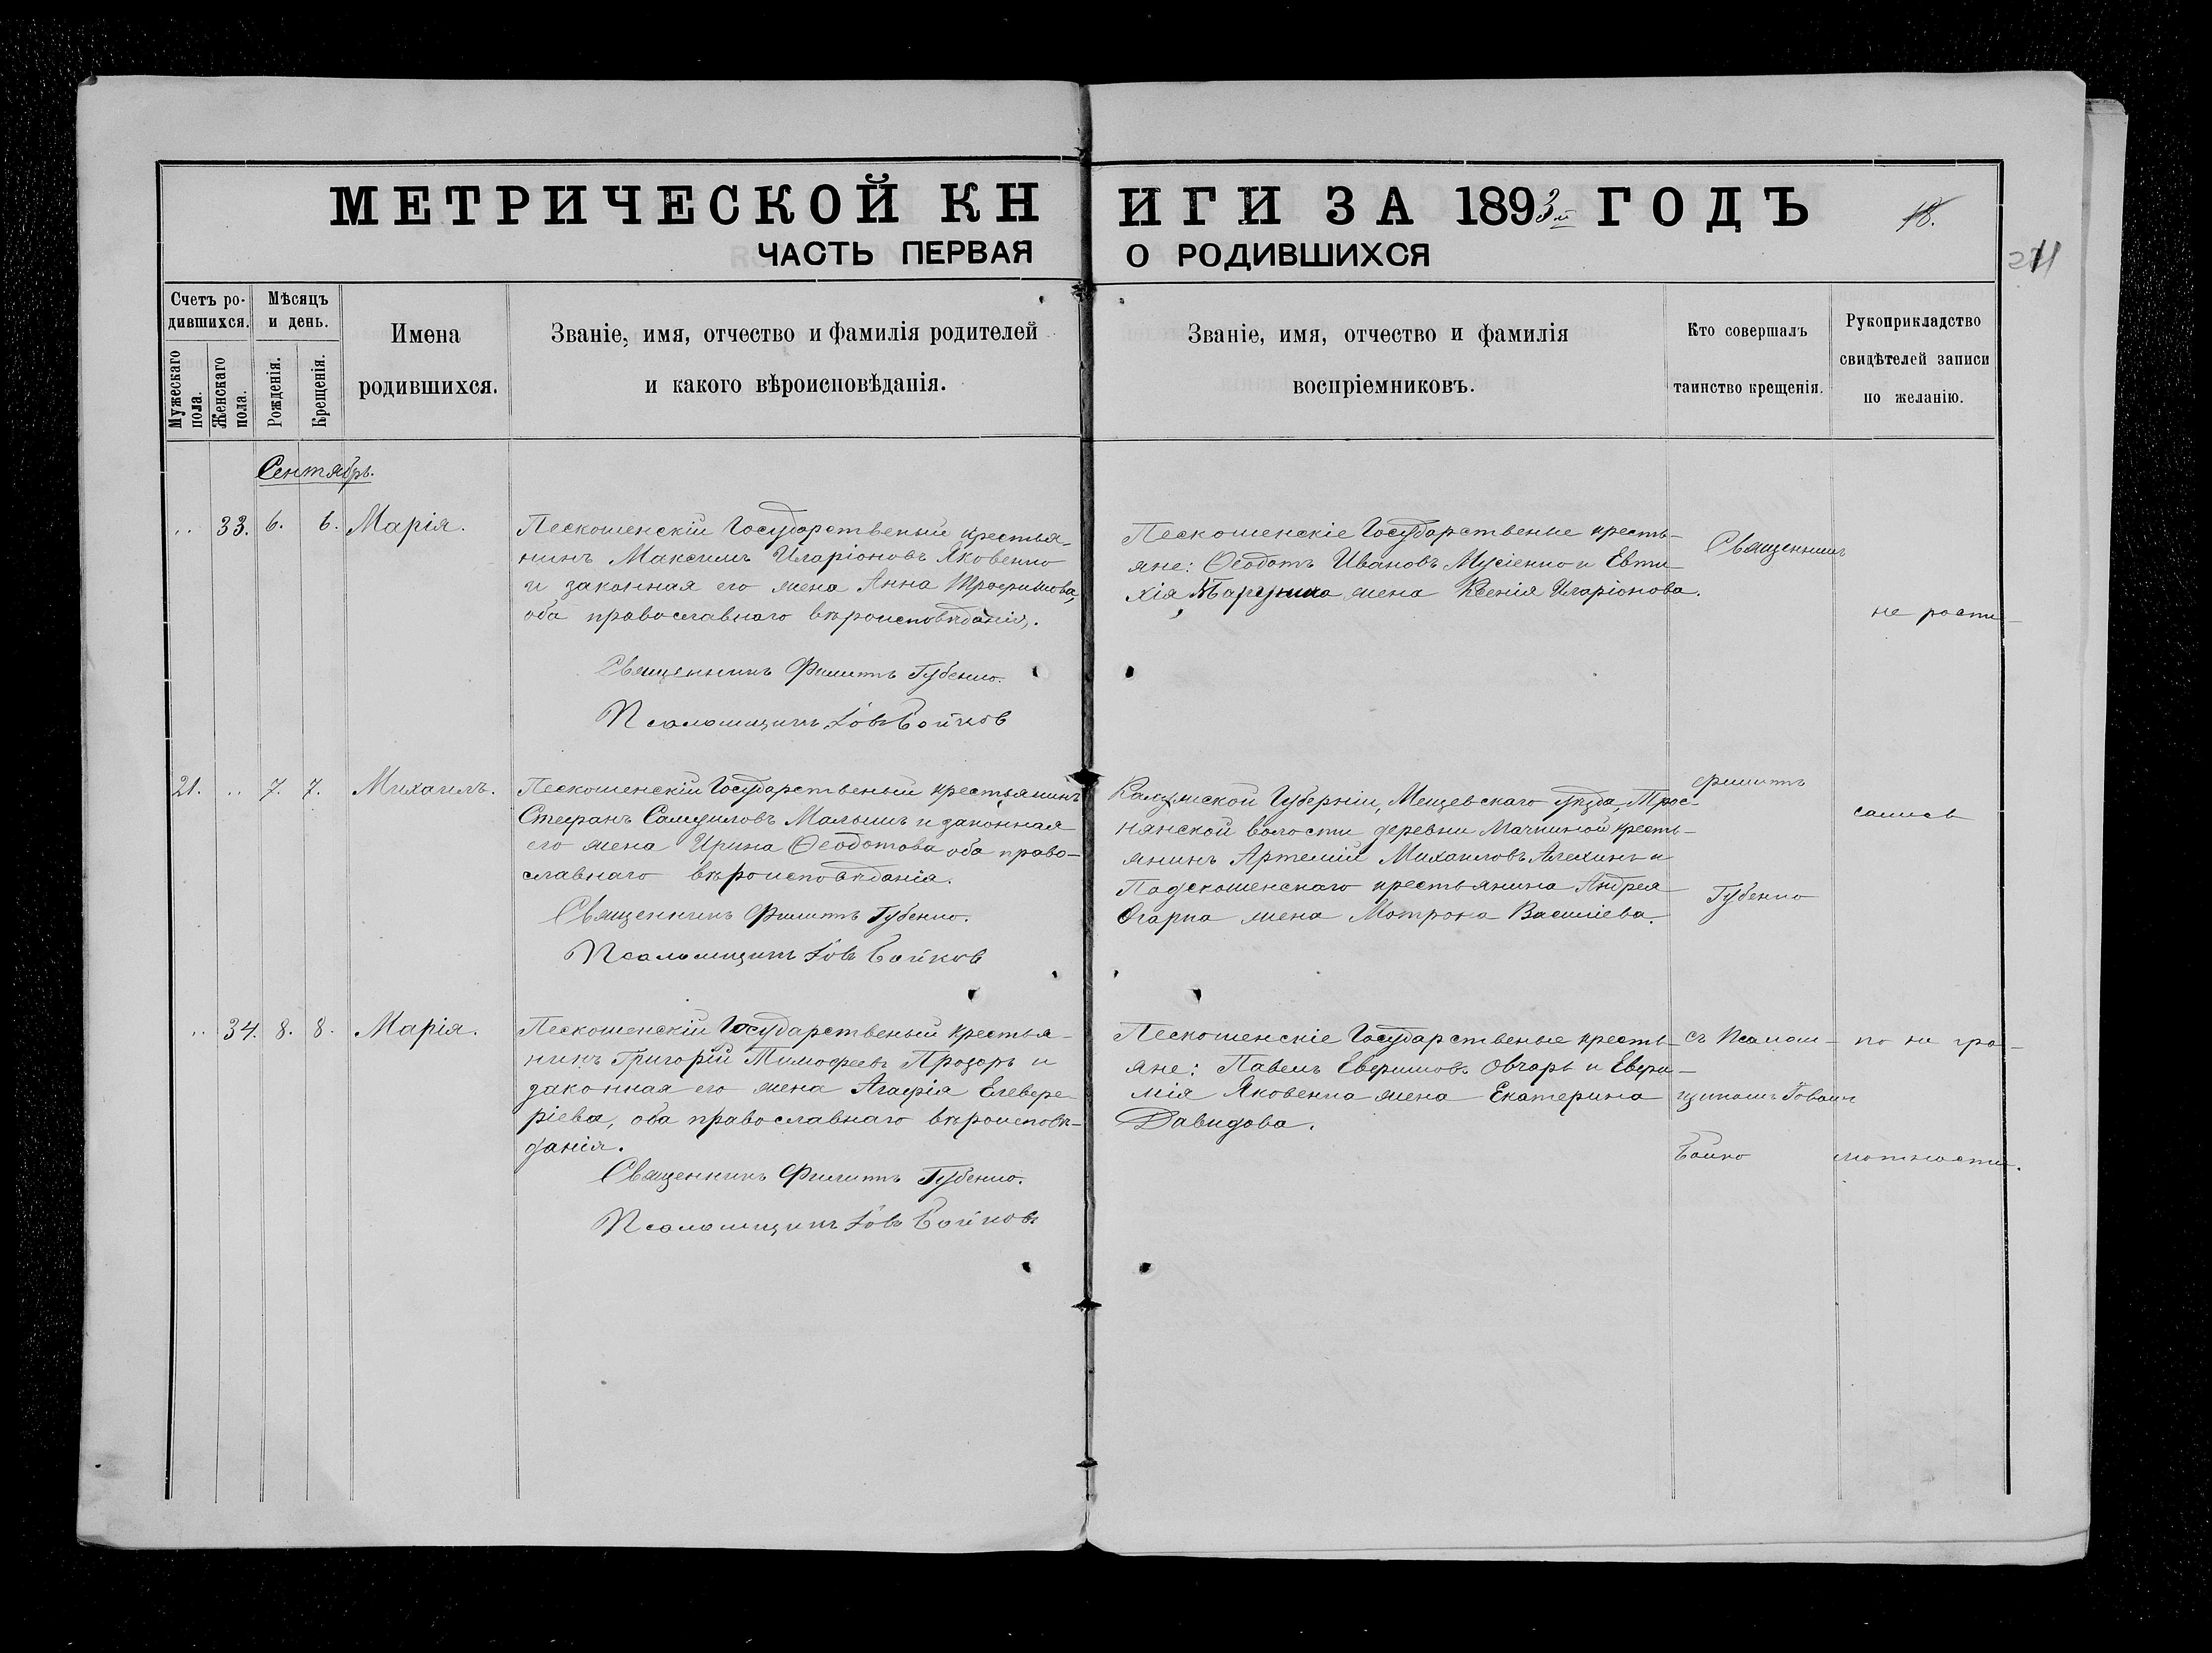 МЕТРИЧЕСКОЙ КНИГИ ЗА 1893й ГОДЪ
18.
ЧАСТЬ ПЕРВАЯ О РОДИВШИХСЯ
Счетъ родившихся.
Мужескаго пола.
Женскаго пола.
Мѣсяцъ и день.
Рожденія.
Крещенія.
Имена
родившихся.
Званіе, имя, отчество и фамилія родителей
и какого вѣроисповѣданія.
Званіе, имя, отчество и фамилія
воспріемниковъ.
Кто совершалъ
таинство крещенія.
Рукоприкладство
свидѣтелей записи
по желанію.
Сентябрь.
33. 6. 6. Марія.
Пескошенскій Государственый крестья-
нинъ Максимъ Иларіоновъ Яковенко
и законная его жена Анна Трофимова,
оба православнаго вѣроисповѣданія.
Священникъ Филиппъ Губенко.
Псаломщикъ Іовъ Бойков
Пескошенскіе Государственые кресть-
яне: Ѳеодотъ Ивановъ Мусіенко и Евти-
хія жена Ксенія Иларіонова.
Священникъ
не рости-
21. 7. 7. Михаилъ.
Пескошенскій Государственый крестьянинъ
Стефанъ Самуиловъ Малышъ и законная
его жена Ирина Ѳеодотова оба право-
славнаго вѣроисповѣданія.
Священникъ Филиппъ Губенко.
Псаломщикъ Іовъ Бойков
Калужской Губерніи, Мещевскаго уѣзда, Трос-
нянской волости деревни Мачкиной кресть-
янинъ Артемій Михаиловъ Алехинъ и
крестьянина Андрея
Огарка жена Мотрона Василіева.
Филиппъ
Губенко
34. 8. 8. Марія.
Пескошенскій Государственый крестья-
нинъ Григорій Тимофеевъ Прозоръ и
законная его жена Агафія Елевфе-
ріева, оба православнаго вѣроисповѣ-
данія.
Священникъ Филиппъ Губенко.
Псаломщикъ Іовъ Бойковъ
Пескошенскіе Государственые кресть-
яне: Павелъ Евфимовъ Овчарь и Евфи-
мія Яковенка жена Екатерина
Давидова.
съ Псалом-
щикомъ Іовомъ
Бойко
по не гра-
мотности.